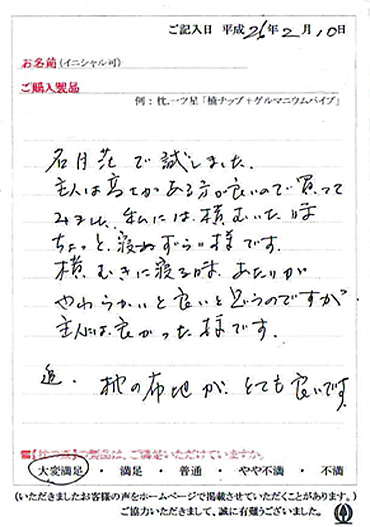 ご記入日 平成26年2月10日
お名前(イニシャル可)
ご購入製品
例：枕、一ツ星「檜チップ＋ゲルマニウムパイプ」
名月荘で試しました。
主人は高さがある方が良いので買って
みました。私には横むいた時
ちょっと、寝ねずらい様です。
横むきに寝る時、あたりが
やわらかいと良いと思うのですが
主人には良かった様です。
追．枕の布地が、とても良いです。
の製品は、ご満足いただけていますか。
大変満足・満足・普通・やや不満・不満
(いただきましたお客様の声をホームページで掲載させていただくことがあります。)
ご協力いただきまして、誠に有難うございました。